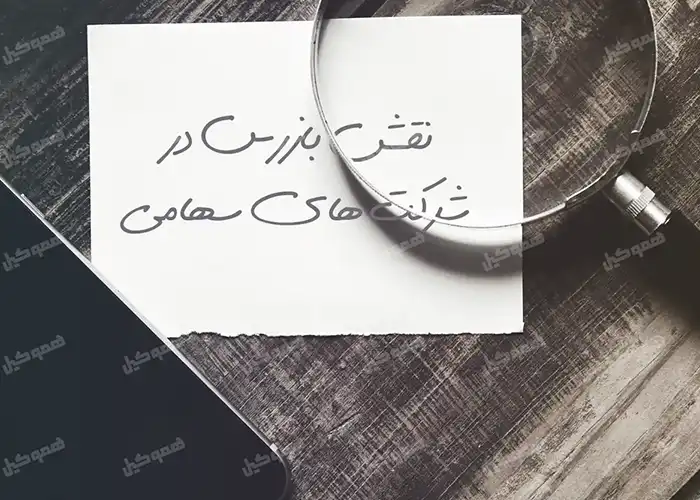 نقش بازرس در
شرکت های سهامی
هموکیل